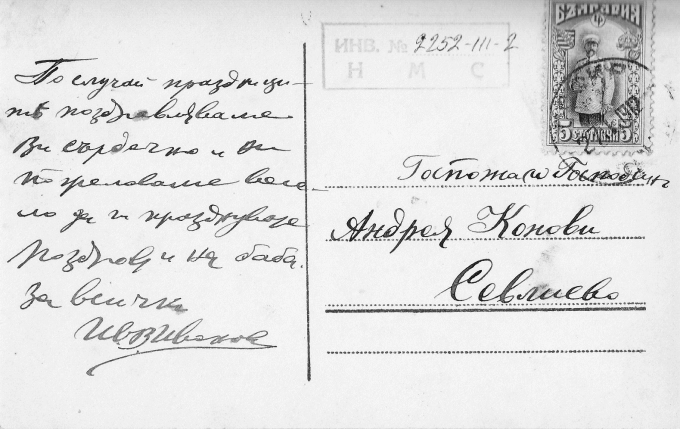 По случай праздници-
тѣ поздравляваме
Ви сърдечно и Ви
пожелаваме весе-
ло да ги празднувате
Поздрав и на баба.
За всички
Ив. В. Иванов
ИНВ. № 2252-III-2
Н М С
БЪЛГАРИЯ
5 СТОТИНКИ 5
Госпожа и Господинъ
Андрея Конови
Севлиево